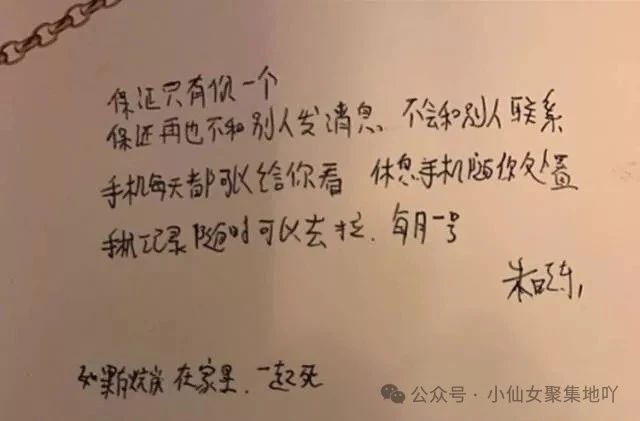 保证只有你一个
保证再也不和别人发消息 不会和别人联系
手机每天都可以给你看 休息手机随你处置
手机记录随时可以去拉. 每月一号
朱晓东
如果 在家里. 一起死
公众号 · 小仙女聚集地吖